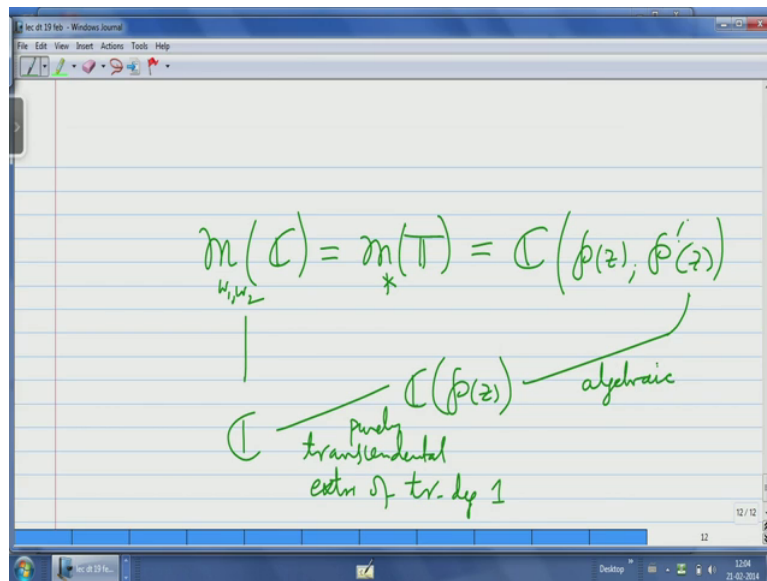 lec dt 19 feb - Windows Journal
File Edit View Insert Actions Tools Help
m_{w_1,w_2}(ℂ) = m_*(𝕋) = ℂ(℘(z), ℘'(z))
ℂ(℘(z)) algebraic
ℂ purely
transcendental
extn of tr. deg 1
12 / 12
12
lec dt 19 fe...
Desktop
12:04
21-02-2014